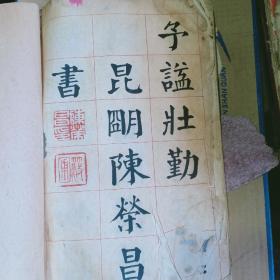 予謚壯勤
昆明陳榮昌
書